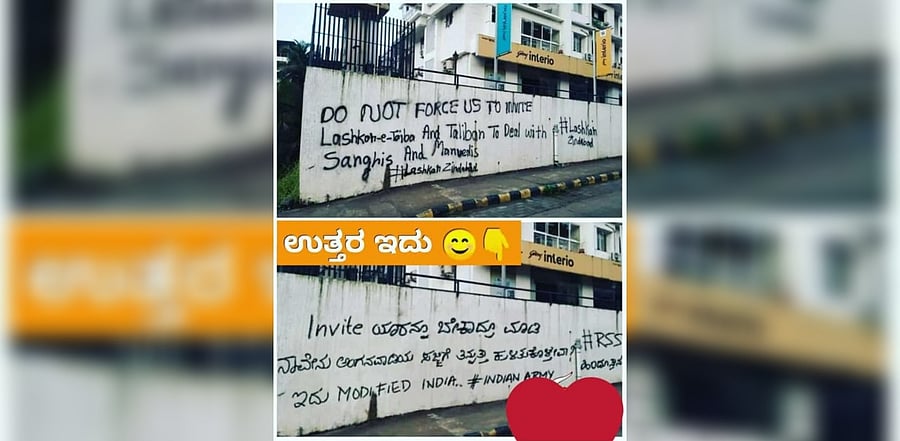 DO NOT FORCE US TO INVITE
Lashkar-e-Toiba And Taliban To Deal with
Sanghis And Manuvedis
#LashkarZindabad
#Lashkar
Zindabad
Godrej interio
ಉತ್ತರ ಇದು 😊👇
Godrej interio
Invite ಯಾರನ್ನೂ ಬೇಕಾದ್ರೂ ಮಾಡಿ
ನಾವೇನು ಅಂಗನವಾಡಿಯ ಸಜ್ಜಿಗೆ ತಿನ್ನುತ್ತಾ
ಇದು MODIFIED INDIA.. #INDIAN ARMY
#RSS